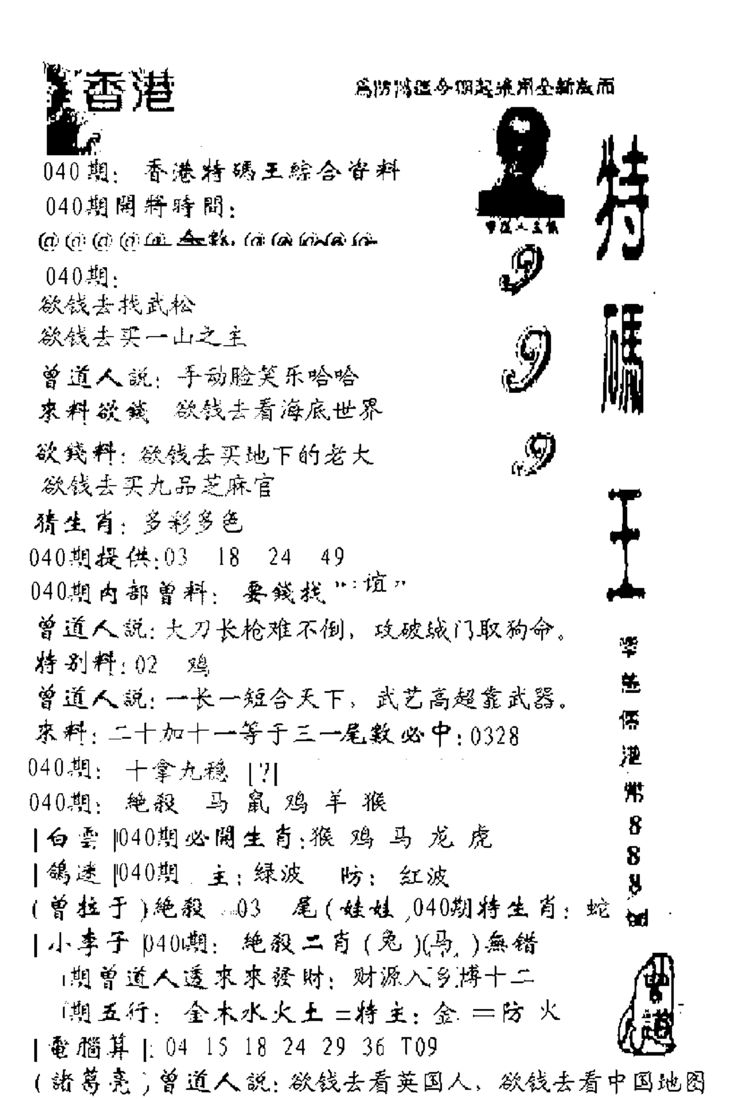 香港
040期：香港特碼王綜合資料
040期開將時間：
040期：
欲钱去找武松
欲钱去买一山之主
曾道人説：手动脸笑乐哈哈
來料欲錢 欲钱去看海底世界
欲錢料：欲钱去买地下的老大
欲钱去买九品芝麻官
猜生肖：多彩多色
040期提供:03 18 24 49
040期内部曾料：要錢找"谊"
曾道人説:大刀长枪难不倒，攻破城门取狗命。
特别料:02 鸡
曾道人説:一长一短合天下，武艺高超靠武器。
來料:二十加十一等于三一尾数必中:0328
040期：十拿九稳 [?]
040期：絶殺 马 鼠 鸡 羊 猴
|白雲|040期必開生肖:猴 鸡 马 龙 虎
|鴿迷|040期 主:緑波 防：红波
(曾拉于)絶殺 03 尾(娃娃 040期特生肖：蛇
|小李子|040期：絶殺二肖(兔)(马)無错
期曾道人透來來發財：财源入乡博十二
期五行：金木水火土=特主：金 =防 火
|電腦算|:04 15 18 24 29 36 T09
(諸葛亮)曾道人説:欲钱去看英国人，欲钱去看中国地图
999
特碼王
888
曾道